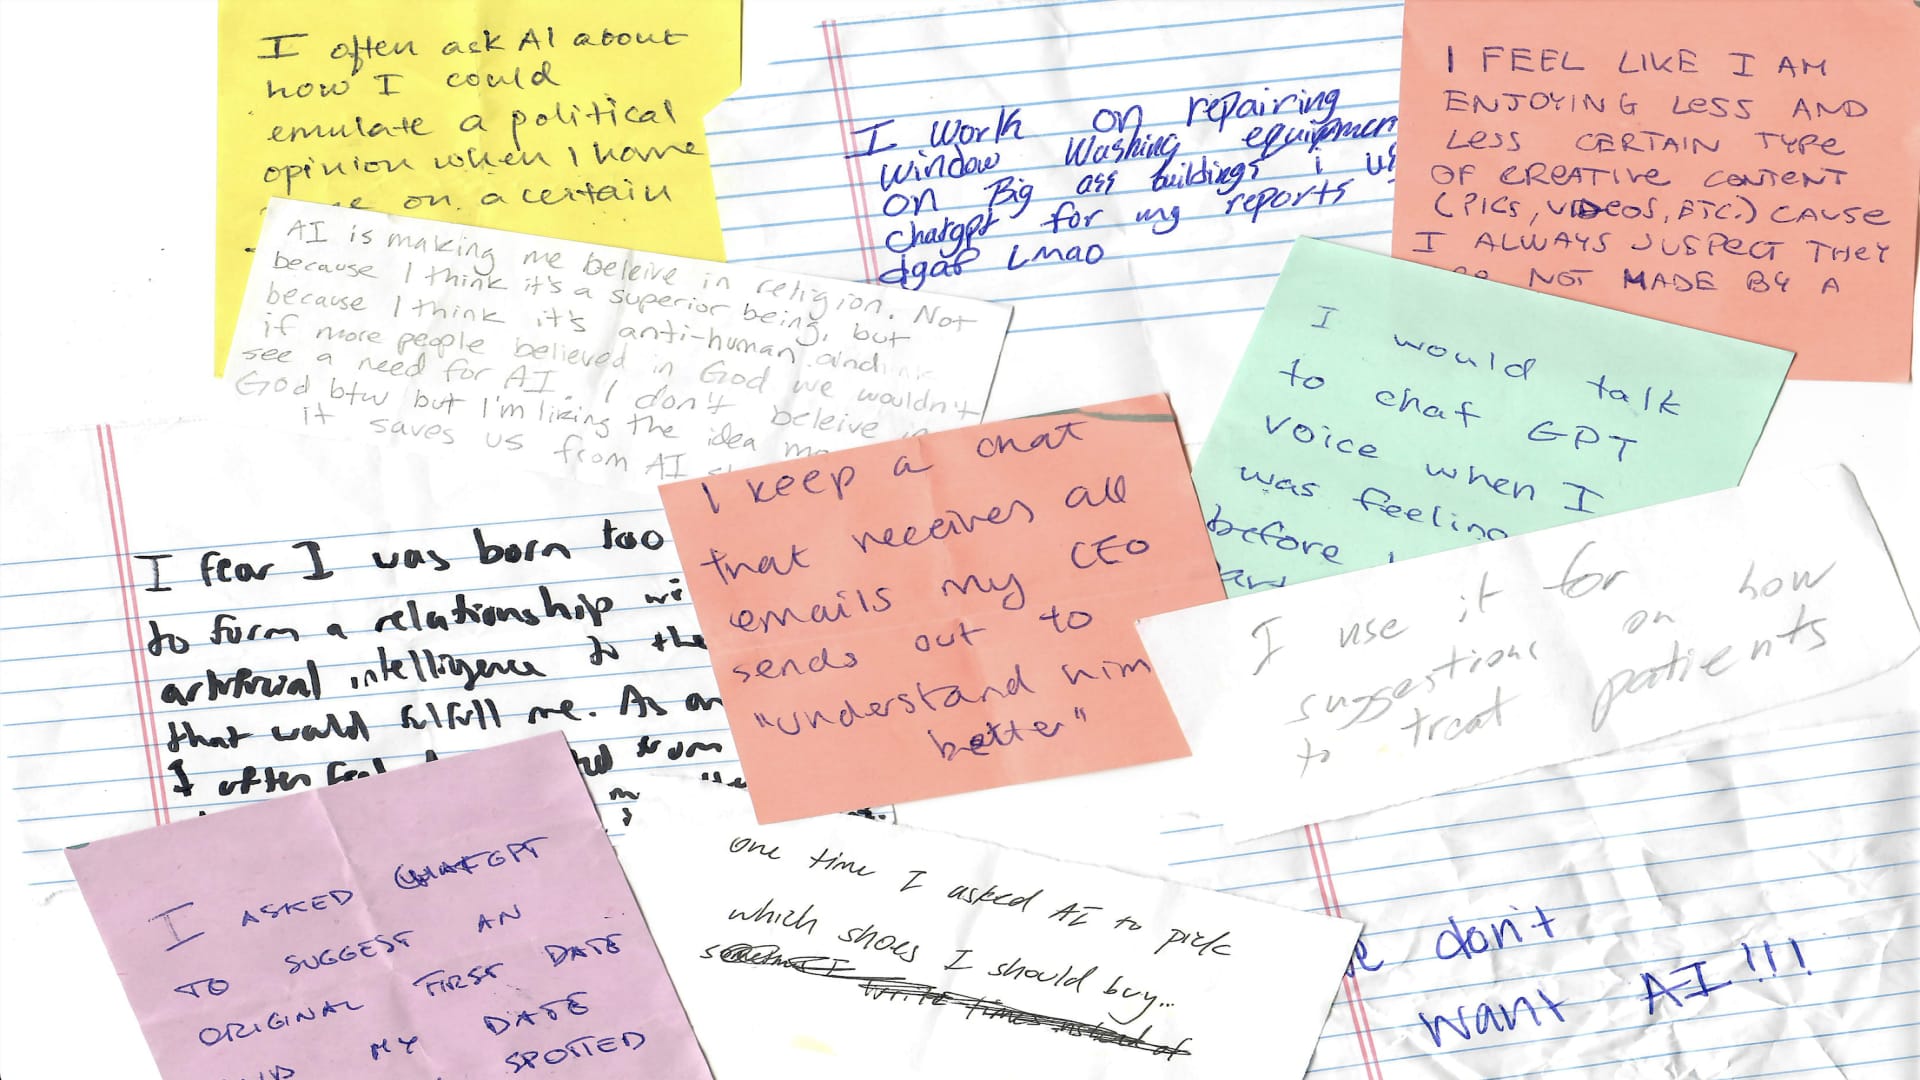 I often ask AI about
how I could
emulate a political
opinion when I home
on a certain
I work on repairing
window Washing equipmen
on Big ass buildings i us
Chatgpt for my reports
dgaf Lmao
I FEEL LIKE I AM
ENJOYING LESS AND
LESS CERTAIN TYPE
OF CREATIVE CONTENT
(PICS, VIDEOS, ETC.) CAUSE
I ALWAYS SUSPECT THEY
NOT MADE BY A
AI is making me beleive in religion. Not
because I think it's a superior being, but
because I think it's anti-human and
if more people believed in God we wouldn't
see a need for AI. I don't beleive in
God btw but I'm liking the idea
it saves us from AI
I would talk
to chat GPT
voice when I
was feeling
before
I keep a chat
that receives all
emails my CEO
sends out to
"understand him
better"
I fear I was born too
to form a relationship wi
artificial intelligence to the
that would fulfill me. As an
I often feel
from
I use it for
suggestions on how
to treat patients
I ASKED CHATGPT
TO SUGGEST AN
ORIGINAL FIRST DATE
MY DATE
SPOTTED
one time I asked AI to pick
which shoes I should buy...
I write times instead of
don't
want AI!!!